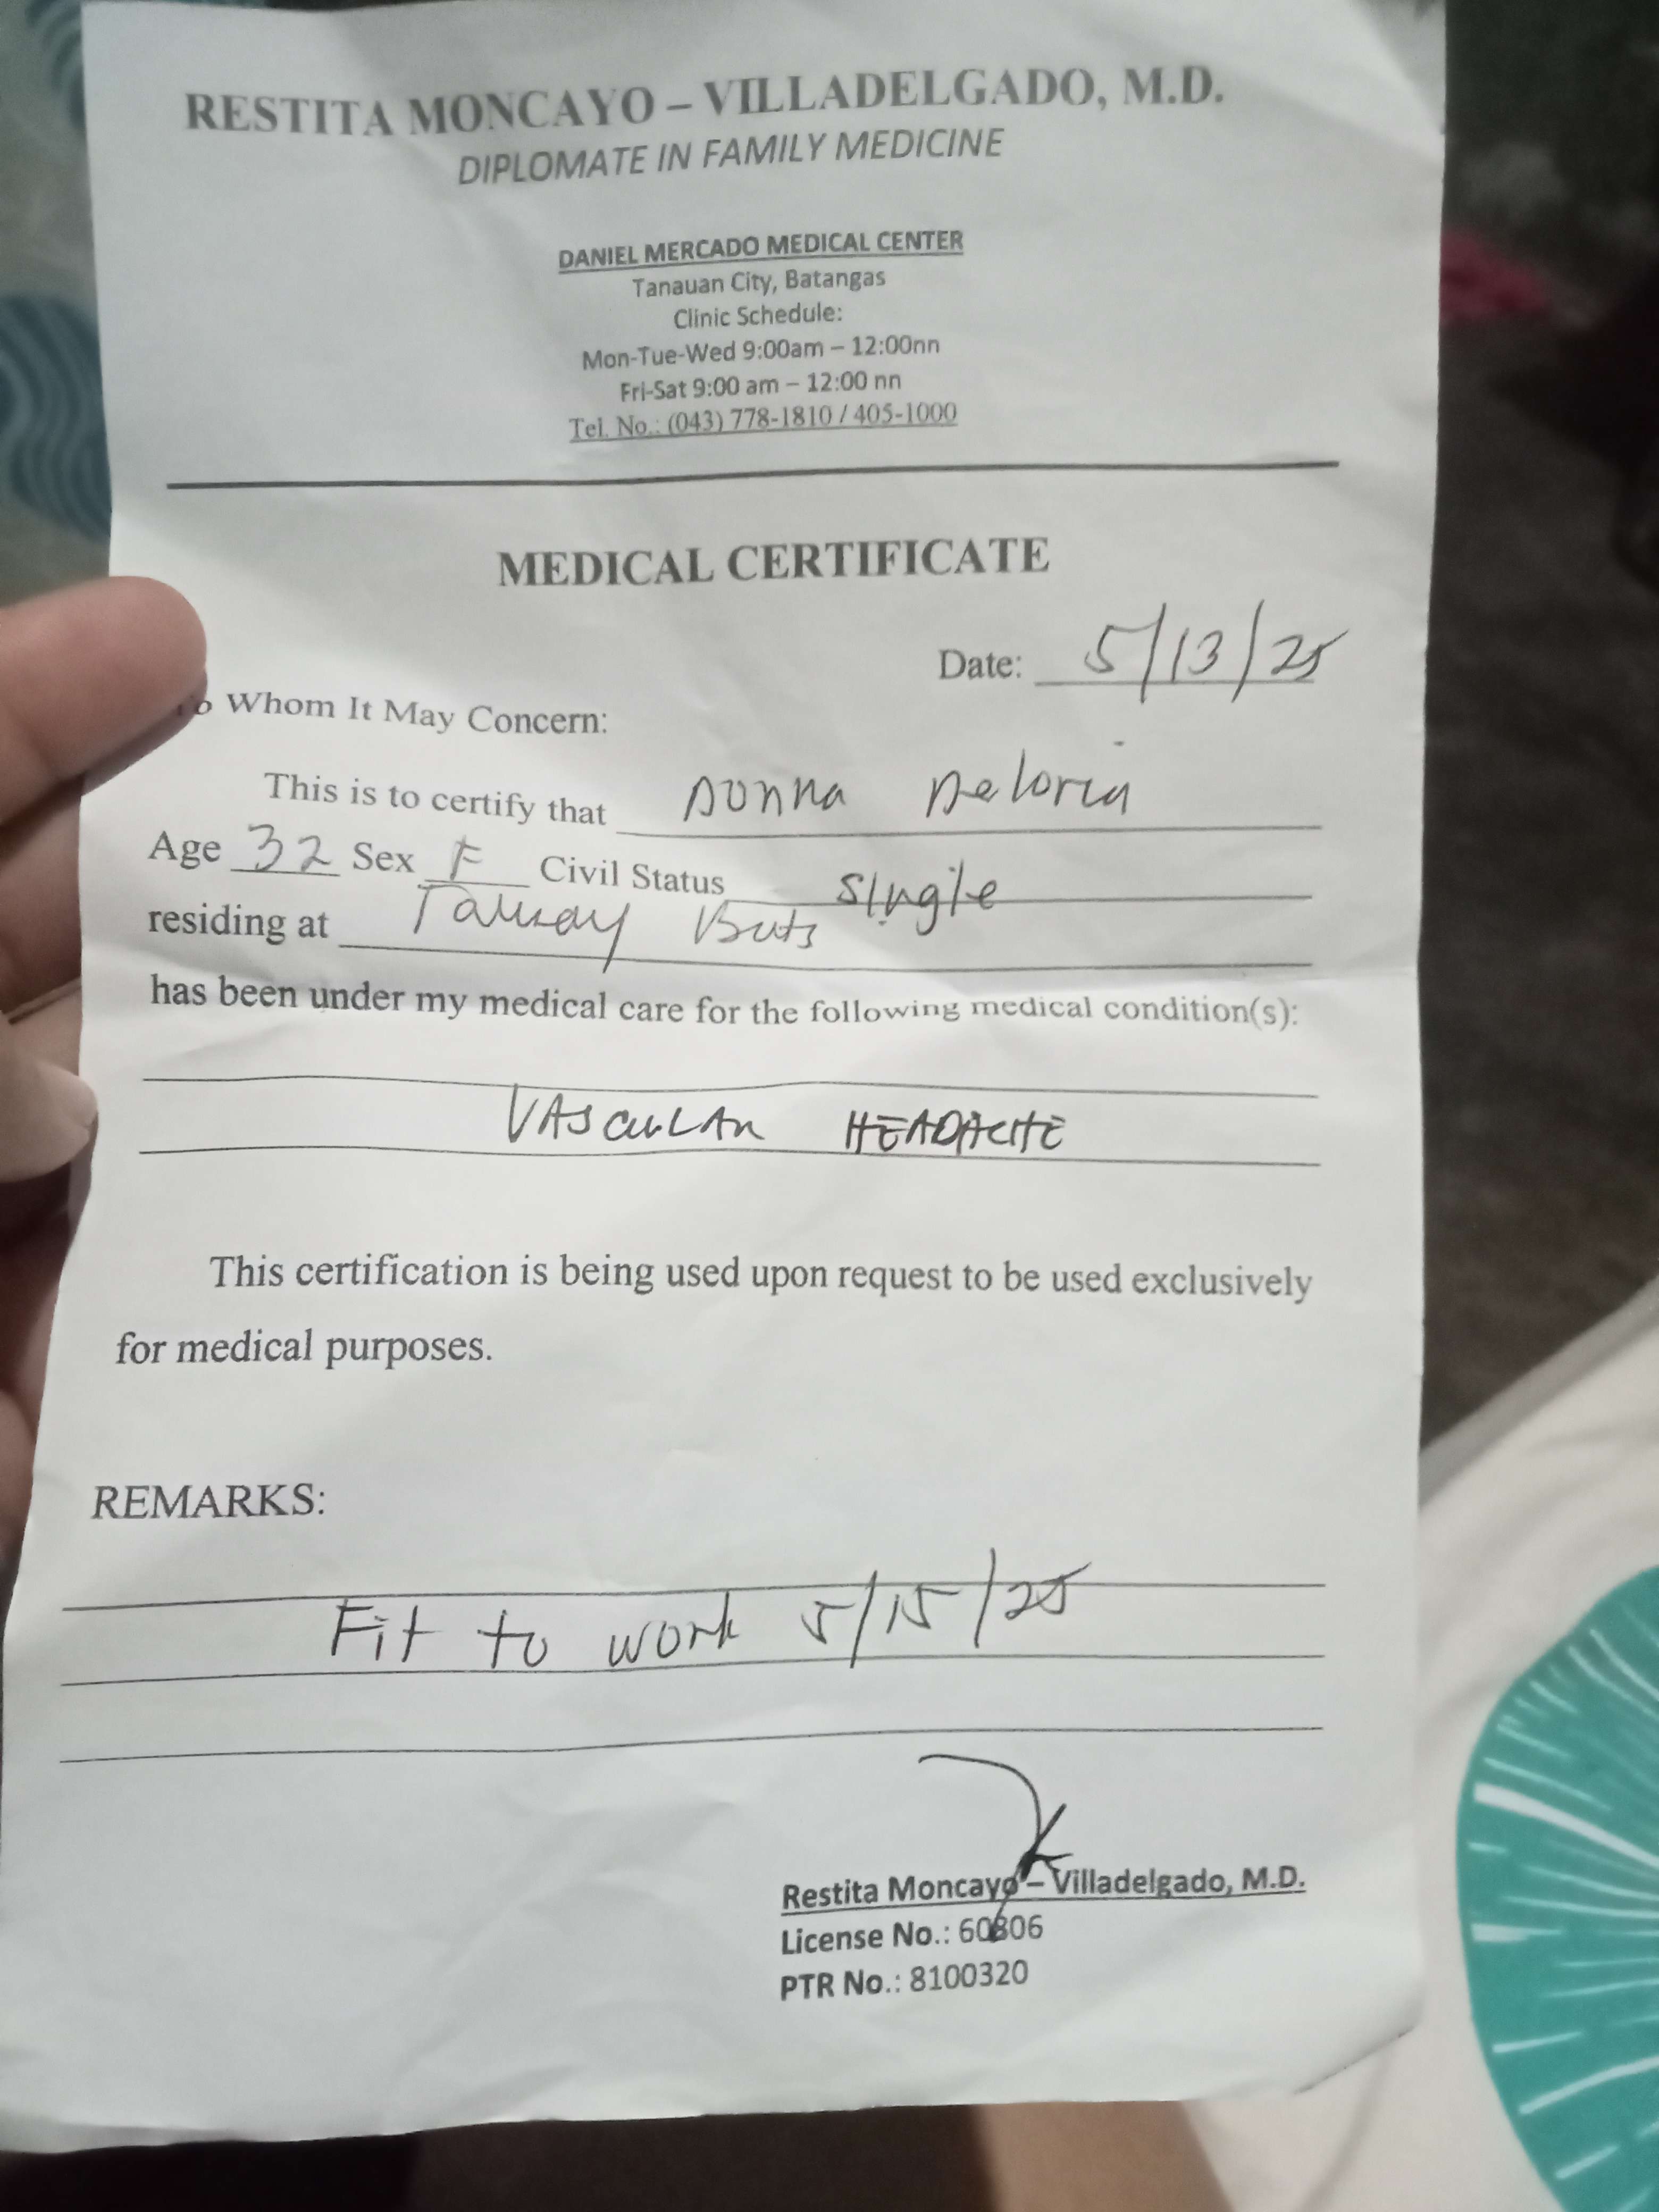 RESTITA MONCAYO – VILLADELGADO, M.D.
DIPLOMATE IN FAMILY MEDICINE
DANIEL MERCADO MEDICAL CENTER
Tanauan City, Batangas
Clinic Schedule:
Mon-Tue-Wed 9:00am – 12:00nn
Fri-Sat 9:00 am – 12:00 nn
Tel. No.: (043) 778-1810 / 405-1000
MEDICAL CERTIFICATE
Date: 5/13/25
Whom It May Concern:
This is to certify that Donna Deloria
Age 32 Sex F Civil Status single
residing at
has been under my medical care for the following medical condition(s):
VASCULAR HEADACHE
This certification is being used upon request to be used exclusively
for medical purposes.
REMARKS:
Fit to work 5/15/25
Restita Moncayo – Villadelgado, M.D.
License No.: 60806
PTR No.: 8100320